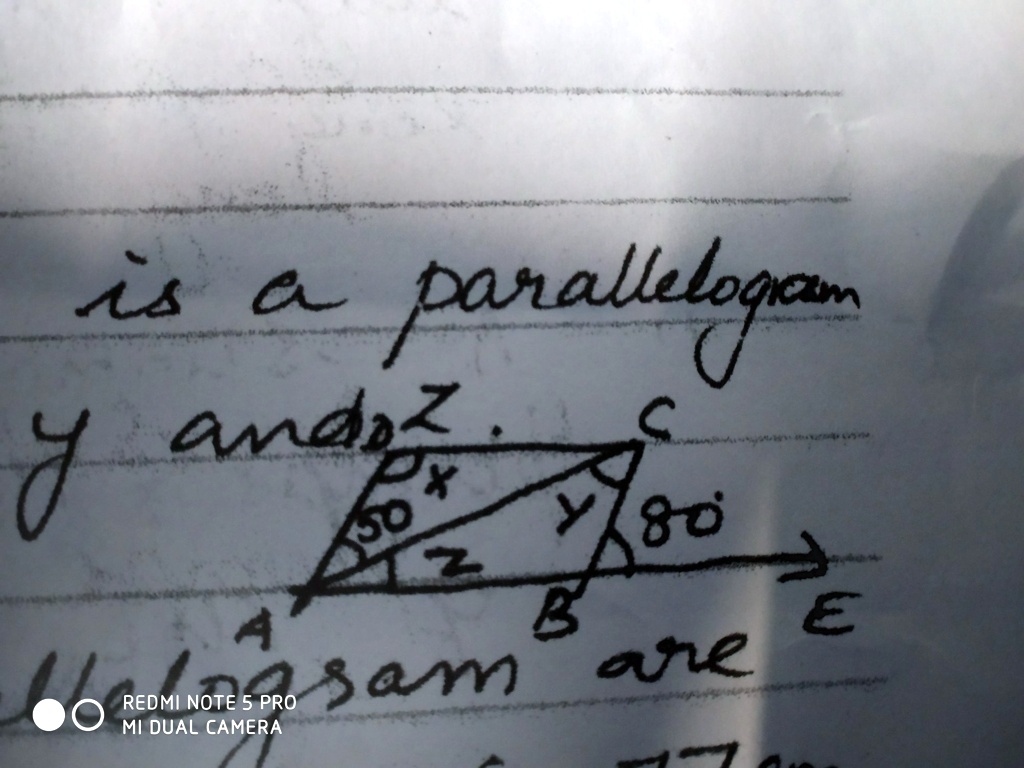 is a parallelogram
y and z.
D C
x
50 y 80°
z
A B E
llelogram are
77cm
REDMI NOTE 5 PRO
MI DUAL CAMERA